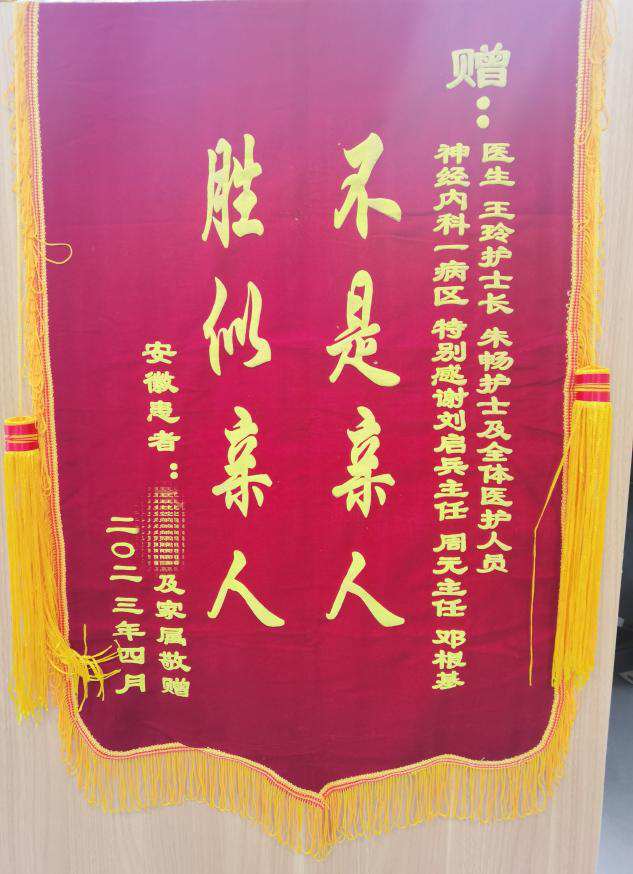 赠：
神经内科一病区 特别感谢刘启兵主任 周元主任 邓根基
医生 王玲护士长 朱畅护士及全体医护人员
不是亲人
胜似亲人
安徽患者：
及家属敬赠
二〇二三年四月